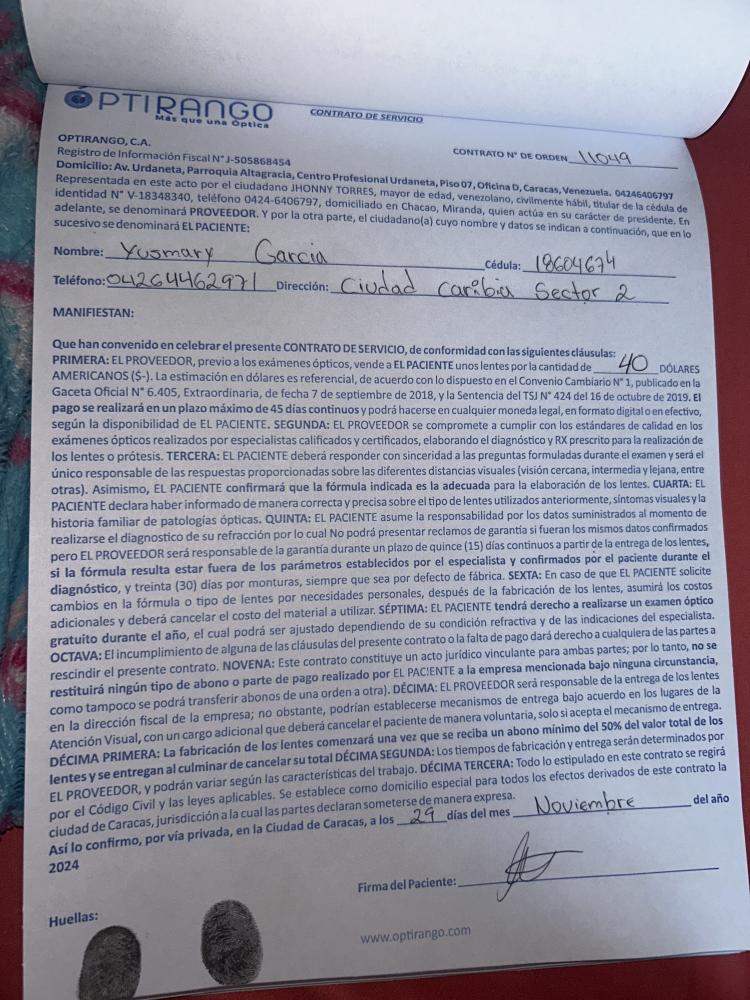 ÓPTIRANGO
Más que una Óptica
CONTRATO DE SERVICIO
OPTIRANGO, C.A.
CONTRATO N° DE ORDEN 11049
Registro de Información Fiscal N° J-505868454
Domicilio: Av. Urdaneta, Parroquia Altagracia, Centro Profesional Urdaneta, Piso 07, Oficina D, Caracas, Venezuela. 04246406797
Representada en este acto por el ciudadano JHONNY TORRES, mayor de edad, venezolano, civilmente hábil, titular de la cédula de
identidad N° V-18348340, teléfono 0424-6406797, domiciliado en Chacao, Miranda, quien actúa en su carácter de presidente. En
adelante, se denominará PROVEEDOR. Y por la otra parte, el ciudadano(a) cuyo nombre y datos se indican a continuación, que en lo
sucesivo se denominará EL PACIENTE:
Nombre: Yusmary Garcia Cédula: 18604674
Teléfono: 04264462971 Dirección: Ciudad Caribia Sector 2
MANIFIESTAN:
Que han convenido en celebrar el presente CONTRATO DE SERVICIO, de conformidad con las siguientes cláusulas:
PRIMERA: EL PROVEEDOR, previo a los exámenes ópticos, vende a EL PACIENTE unos lentes por la cantidad de 40 DÓLARES
AMERICANOS ($-). La estimación en dólares es referencial, de acuerdo con lo dispuesto en el Convenio Cambiario N° 1, publicado en la
Gaceta Oficial N° 6.405, Extraordinaria, de fecha 7 de septiembre de 2018, y la Sentencia del TSJ N° 424 del 16 de octubre de 2019. El
pago se realizará en un plazo máximo de 45 días continuos y podrá hacerse en cualquier moneda legal, en formato digital o en efectivo,
según la disponibilidad de EL PACIENTE. SEGUNDA: EL PROVEEDOR se compromete a cumplir con los estándares de calidad en los
exámenes ópticos realizados por especialistas calificados y certificados, elaborando el diagnóstico y RX prescrito para la realización de
los lentes o prótesis. TERCERA: EL PACIENTE deberá responder con sinceridad a las preguntas formuladas durante el examen y será el
único responsable de las respuestas proporcionadas sobre las diferentes distancias visuales (visión cercana, intermedia y lejana, entre
otras). Asimismo, EL PACIENTE confirmará que la fórmula indicada es la adecuada para la elaboración de los lentes. CUARTA: EL
PACIENTE declara haber informado de manera correcta y precisa sobre el tipo de lentes utilizados anteriormente, síntomas visuales y la
historia familiar de patologías ópticas. QUINTA: EL PACIENTE asume la responsabilidad por los datos suministrados al momento de
realizarse el diagnostico de su refracción por lo cual No podrá presentar reclamos de garantía si fueran los mismos datos confirmados
pero EL PROVEEDOR será responsable de la garantía durante un plazo de quince (15) días continuos a partir de la entrega de los lentes,
si la fórmula resulta estar fuera de los parámetros establecidos por el especialista y confirmados por el paciente durante el
diagnóstico, y treinta (30) días por monturas, siempre que sea por defecto de fábrica. SEXTA: En caso de que EL PACIENTE solicite
cambios en la fórmula o tipo de lentes por necesidades personales, después de la fabricación de los lentes, asumirá los costos
adicionales y deberá cancelar el costo del material a utilizar. SÉPTIMA: EL PACIENTE tendrá derecho a realizarse un examen óptico
gratuito durante el año, el cual podrá ser ajustado dependiendo de su condición refractiva y de las indicaciones del especialista.
OCTAVA: El incumplimiento de alguna de las cláusulas del presente contrato o la falta de pago dará derecho a cualquiera de las partes a
rescindir el presente contrato. NOVENA: Este contrato constituye un acto jurídico vinculante para ambas partes; por lo tanto, no se
restituirá ningún tipo de abono o parte de pago realizado por EL PACIENTE a la empresa mencionada bajo ninguna circunstancia,
como tampoco se podrá transferir abonos de una orden a otra). DÉCIMA: EL PROVEEDOR será responsable de la entrega de los lentes
en la dirección fiscal de la empresa; no obstante, podrían establecerse mecanismos de entrega bajo acuerdo en los lugares de la
Atención Visual, con un cargo adicional que deberá cancelar el paciente de manera voluntaria, solo si acepta el mecanismo de entrega.
DÉCIMA PRIMERA: La fabricación de los lentes comenzará una vez que se reciba un abono mínimo del 50% del valor total de los
lentes y se entregan al culminar de cancelar su total DÉCIMA SEGUNDA: Los tiempos de fabricación y entrega serán determinados por
EL PROVEEDOR, y podrán variar según las características del trabajo. DÉCIMA TERCERA: Todo lo estipulado en este contrato se regirá
por el Código Civil y las leyes aplicables. Se establece como domicilio especial para todos los efectos derivados de este contrato la
ciudad de Caracas, jurisdicción a la cual las partes declaran someterse de manera expresa.
Así lo confirmo, por vía privada, en la Ciudad de Caracas, a los 29 días del mes Noviembre del año
2024
Firma del Paciente:
Huellas:
www.optirango.com